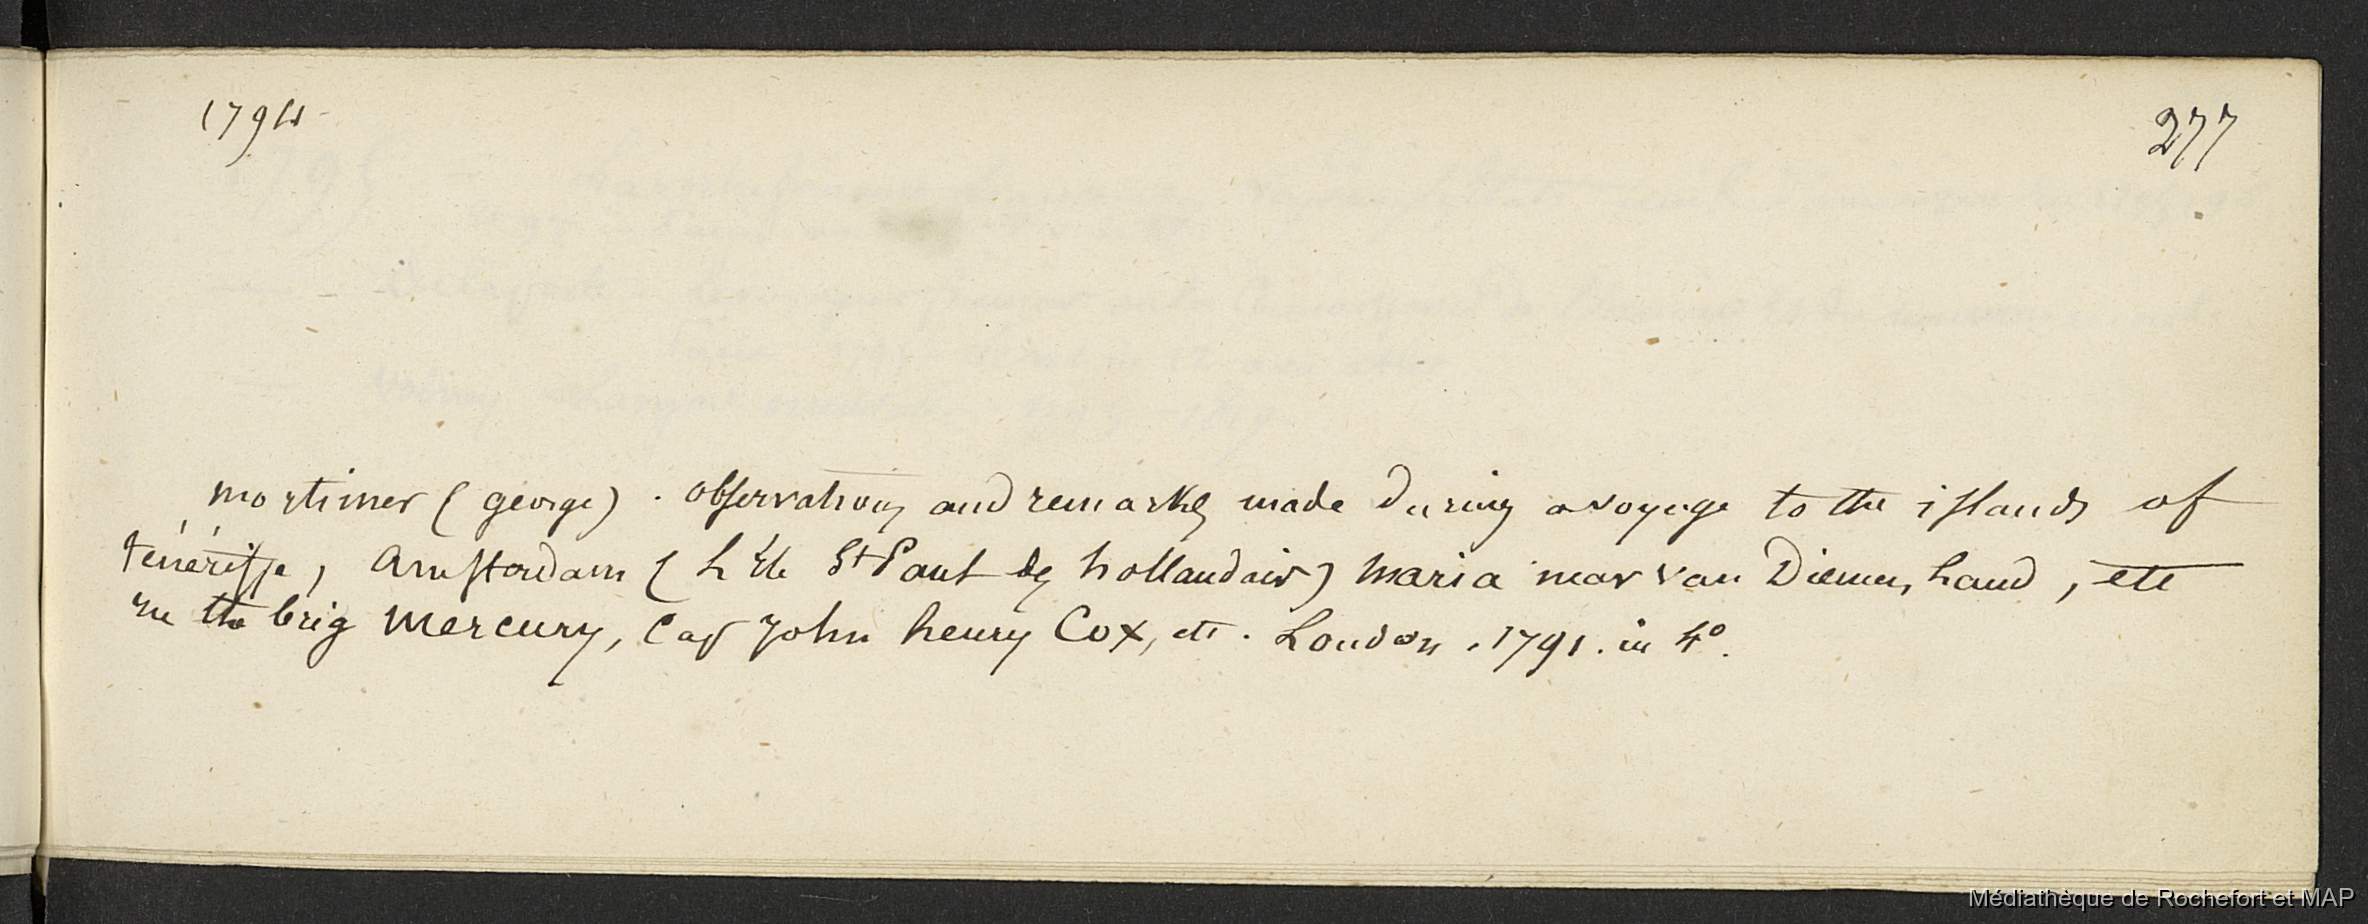 1794
277
mortimer (george). observations and remarks made during a voyage to the islands of
ténériffe, Amsterdam (L'ile St Paul des hollandais) Maria near van Diemens Land, etc
in the brig Mercury, Cap John henry Cox, etc. London. 1791. in 4°.
Médiathèque de Rochefort et MAP